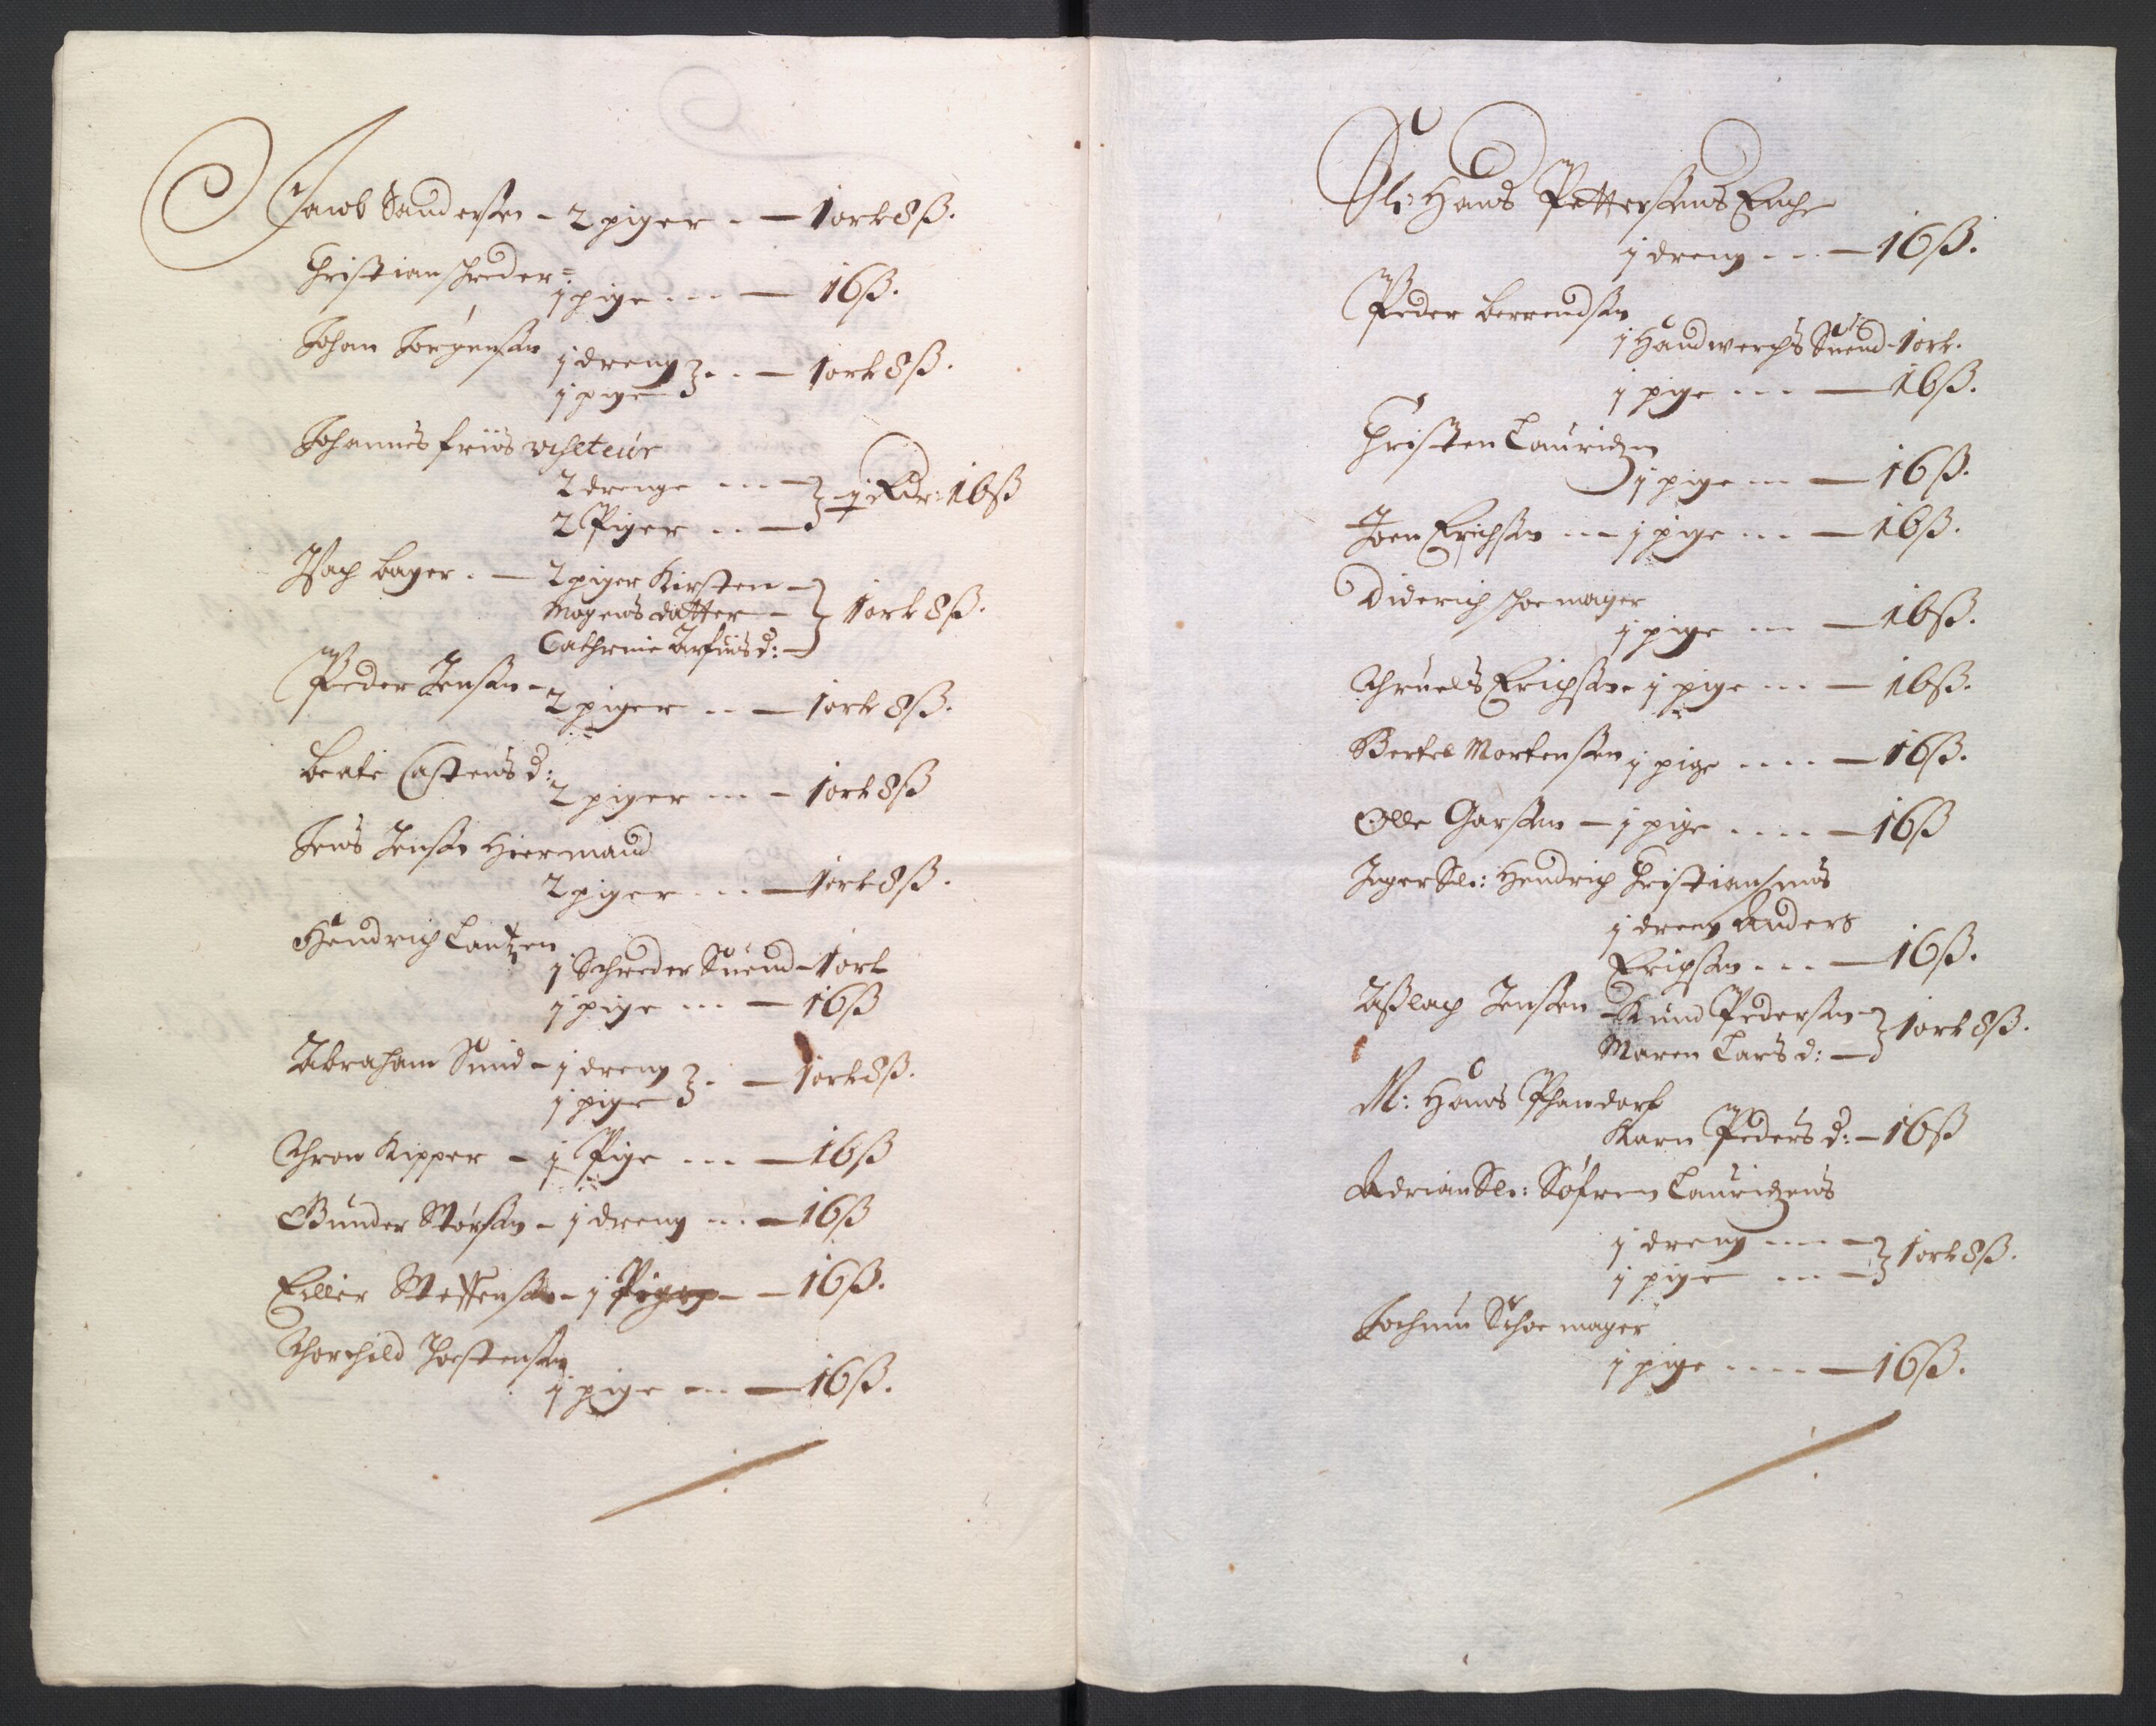 Jacob Sandersen - 2 piger - - 1 ort 8 ß.
Christian schreder =
1 pige - - - 16 ß.
Johan Jörgensen
1 dreng
1 pige - - 1 ort 8 ß.
Johannes friis
2 drenge - - -
2 Piger - - - 1 Rdr: 16 ß
Isach bager. - 2 piger Kirsten -
Mogens datter - 1 ort 8 ß.
Cathrine d: -
Peder Jensen -
2 piger - - 1 ort 8 ß.
Beate Castens d:
2 piger - - - 1 ort 8 ß
Jens Jensen Hiermand
2 piger - - - 1 ort 8 ß.
Hendrich Lautzen
1 Schreder Suend - 1 ort
1 pige - - - 16 ß
Abraham Smid - 1 dreng
1 pige - - 1 ort 8 ß.
Thron Kipper - 1 Pige - - - 16 ß
Gunder Størsen - 1 dreng - - - 16 ß
Eiller Steffensen - 1 - - 16 ß.
Thorchild Thorstensen
1 pige - - - 16 ß.
Sl: Hans Pettersens Enche
1 dreng - - - 16 ß.
Peder Berrendsen
1 Handwerchs Suend - 1 ort.
1 pige - - - 16 ß.
Christen Lauridzen
1 pige - - - 16 ß.
Joen Erichsen - - - 1 pige - - - 16 ß.
Diderich schoemager
1 pige - - - 16 ß.
Thruels Erichsen 1 pige - - - 16 ß.
Bertel Mortensen 1 pige - - - - 16 ß.
Olle Garsen - 1 pige - - - - 16 ß
Inger Sl: Hendrich Christiansens
1 dreng Anders
Erichsen - - - 16 ß.
Aßlach Jensen - Knud Pedersen -
Maren Lars d: - 1 ort 8 ß.
M: Hans Phandorf
Karn Peders d: - 16 ß
Adrian Sl: Søfren Lauridzens
1 dreng - - -
1 pige - - - 1 ort 8 ß.
Jochum Schoemager
1 pige - - - - 16 ß.